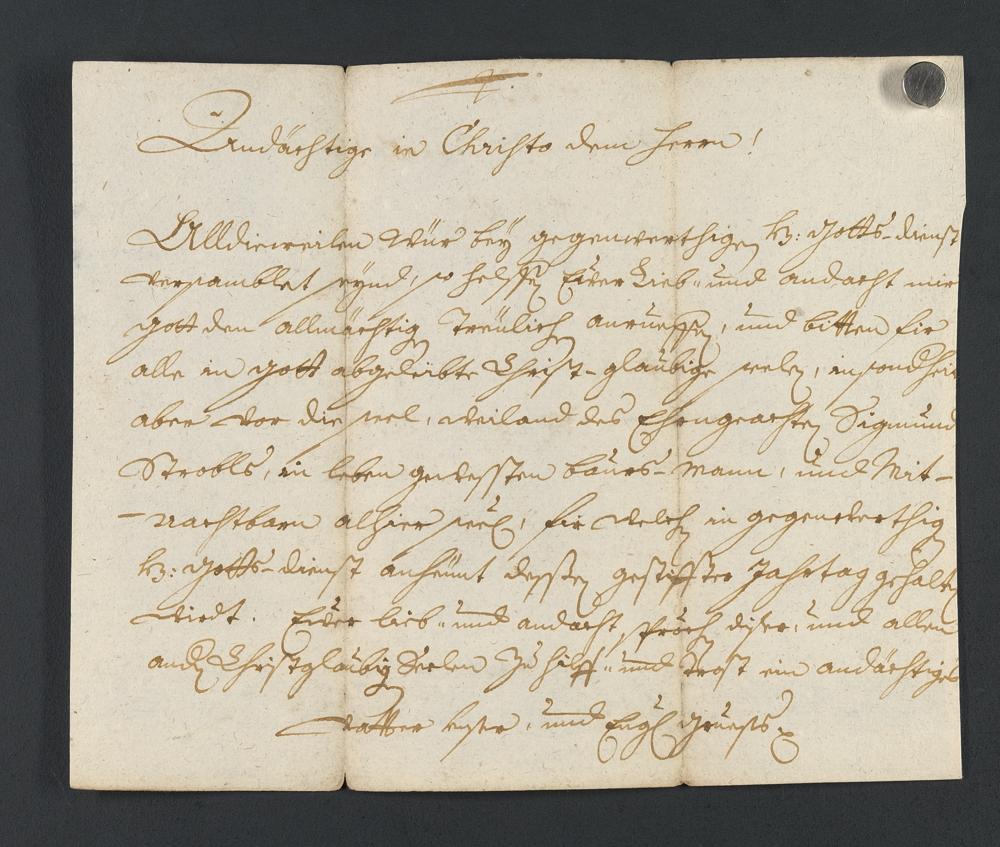 Andächtige in Christo dem Herrn!
Alldieweilen wür bey gegenwerthigen h: Gotts-dienst
versamblet seynd, so helffe Eiver Lieb- und andacht mir
gott den allmächtig treülich anrueffen, und bitten fir
alle in gott abgeleibte Christ-glaubige selen, insonderheit
aber vor die seel, weiland des Ehrngeachten Sigmund
Strobls, in leben gewessten baurs-mann, und Mit-
-nachtbarn alhier seel, fir welche in gegenwerthig
h: Gotts-dienst anheünt dessen gestiffter Jahrtag gehalten
wirdt. Eiver lieb- und andacht sprech diser, und allen
andern Christglaubig Seelen zu hilff- und trost ein andächtiges
vatter unser, und Engl. gruess